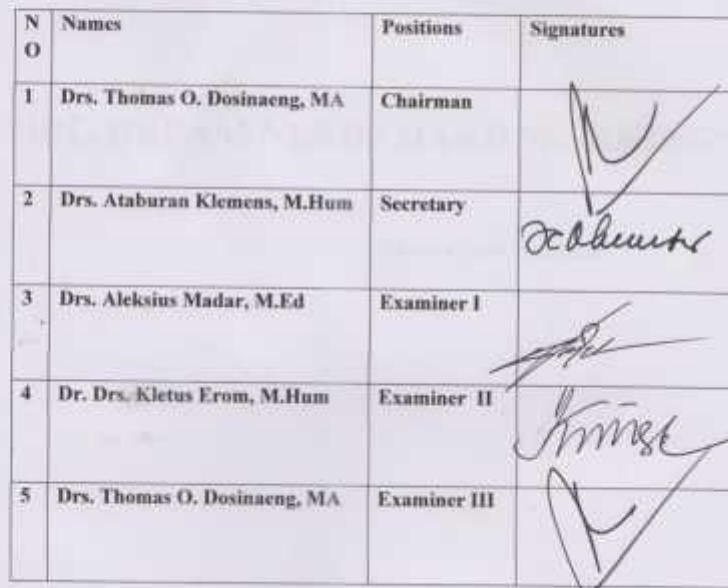 NO Names Positions Signatures
1 Drs. Thomas O. Dosinaeng, MA Chairman
2 Drs. Ataburan Klemens, M.Hum Secretary
3 Drs. Aleksius Madar, M.Ed Examiner I
4 Dr. Drs. Kletus Erom, M.Hum Examiner II
5 Drs. Thomas O. Dosinaeng, MA Examiner III